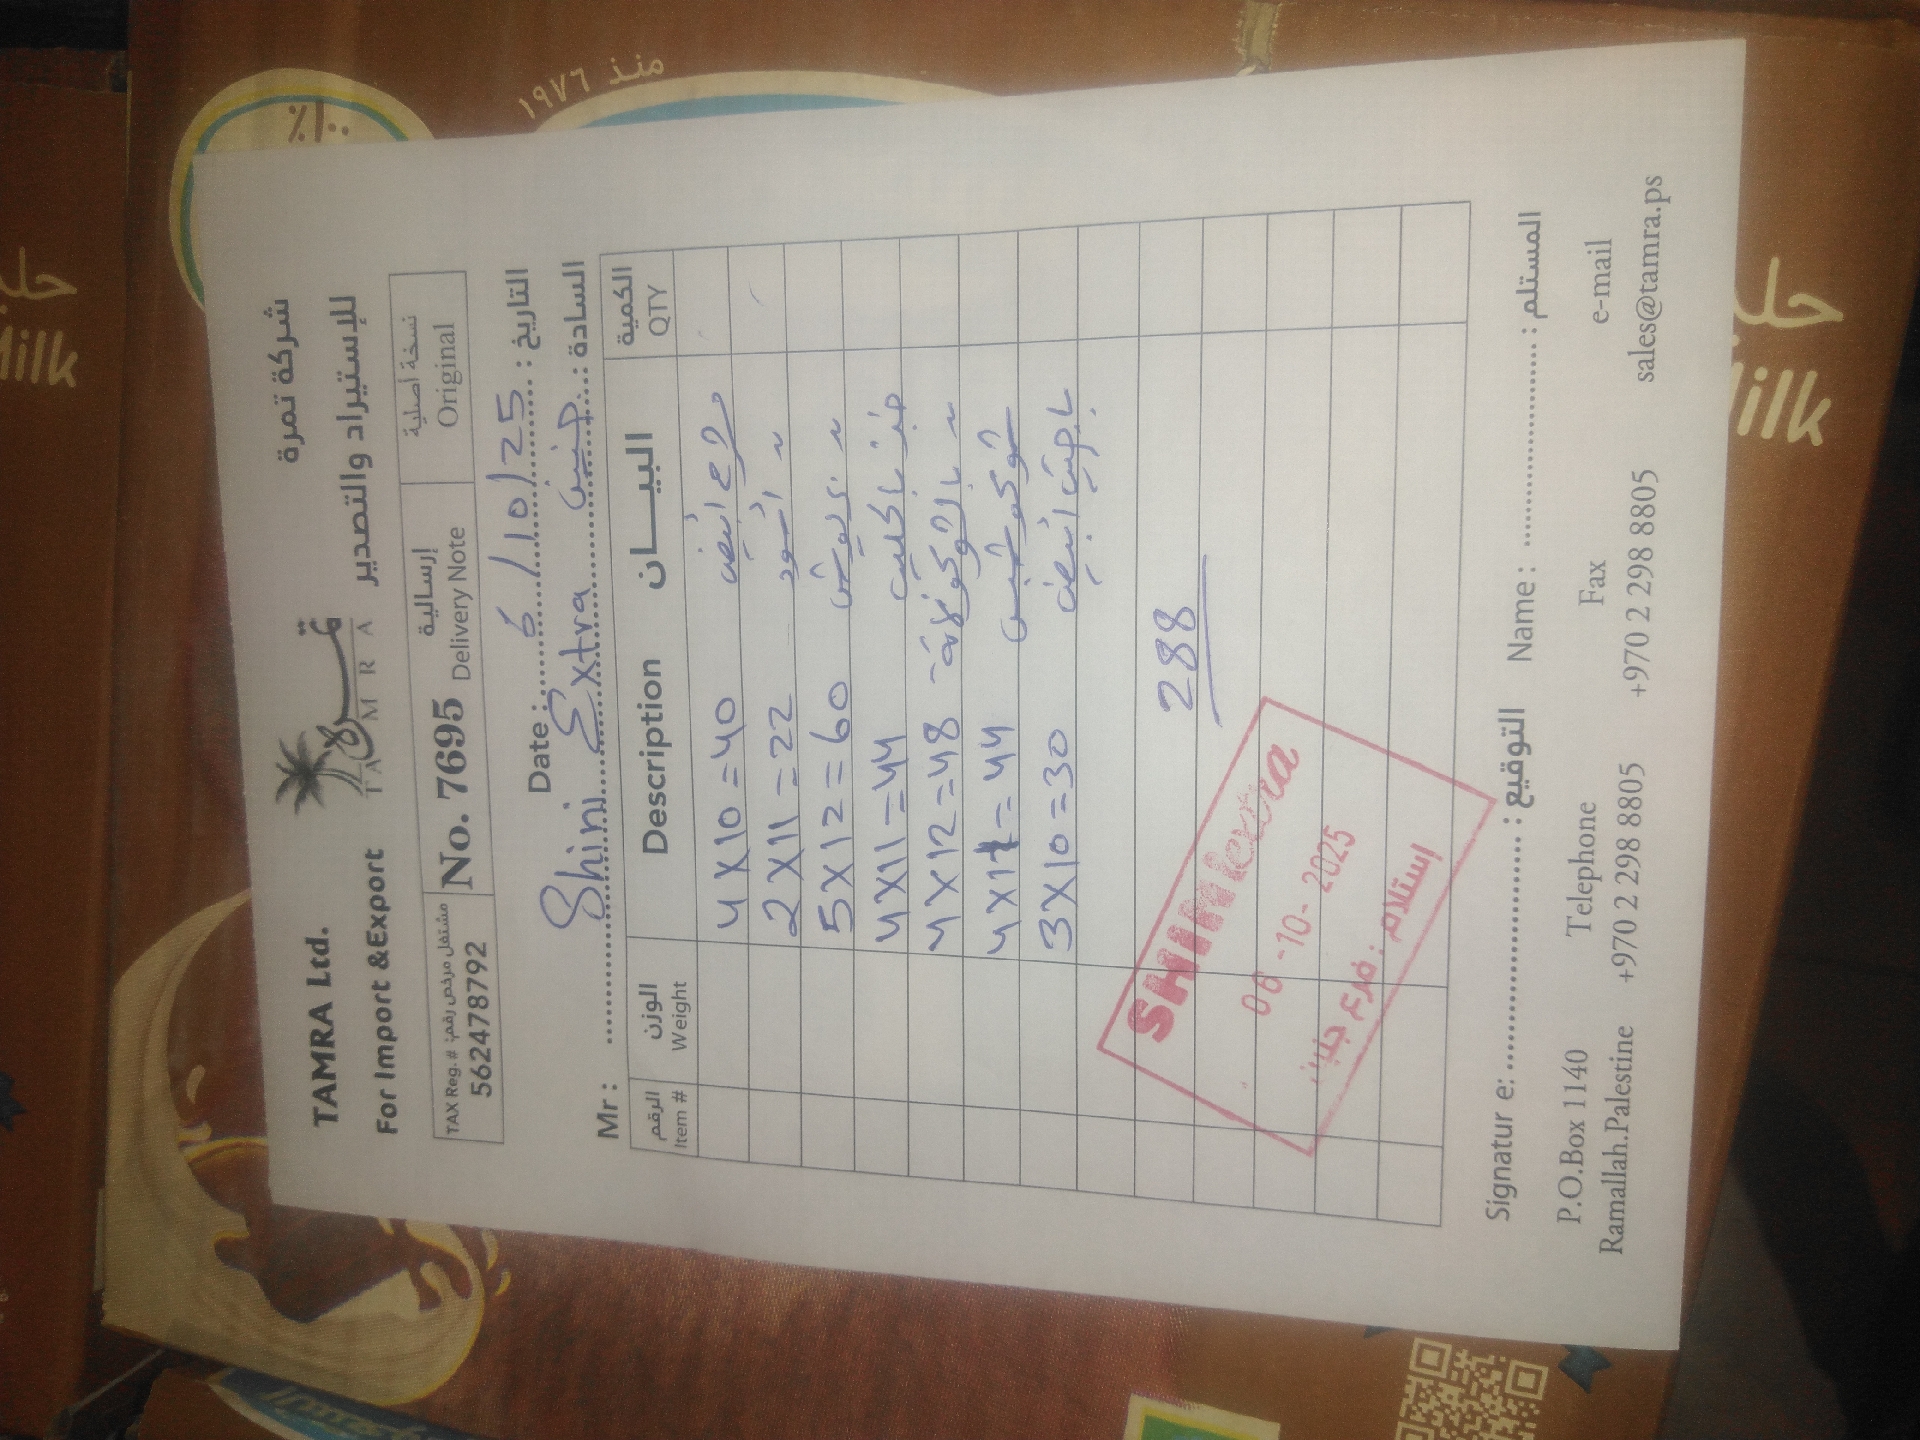 TAMRA Ltd.
For Import &Export
تمرة
TAMRA
شركة تمرة
للإستيراد والتصدير
TAX Reg. # مشتغل مرخص رقم:
562478792
No. 7695
إرسالية
Delivery Note
نسخة أصلية
Original
Date : 6/10/25 : التاريخ
Mr : Shini Extra جنين : السادة
الرقم Item #
الوزن Weight
Description البيـــان
الكمية QTY
4 X 10 = 40
2 X 11 = 22
5 X 12 = 60
4 X 11 = 44
4 X 12 = 48 بالشوكولاتة
4 X 11 = 44
3 X 10 = 30
288
SHINI extra
06 -10- 2025
استلام : فرع جنين
Signatur e: : التوقيع
Name : : المستلم
P.O.Box 1140
Ramallah.Palestine
Telephone
+970 2 298 8805
Fax
+970 2 298 8805
e-mail
sales@tamra.ps
منذ ١٩٧٦
٪١٠٠
Milk
Milk